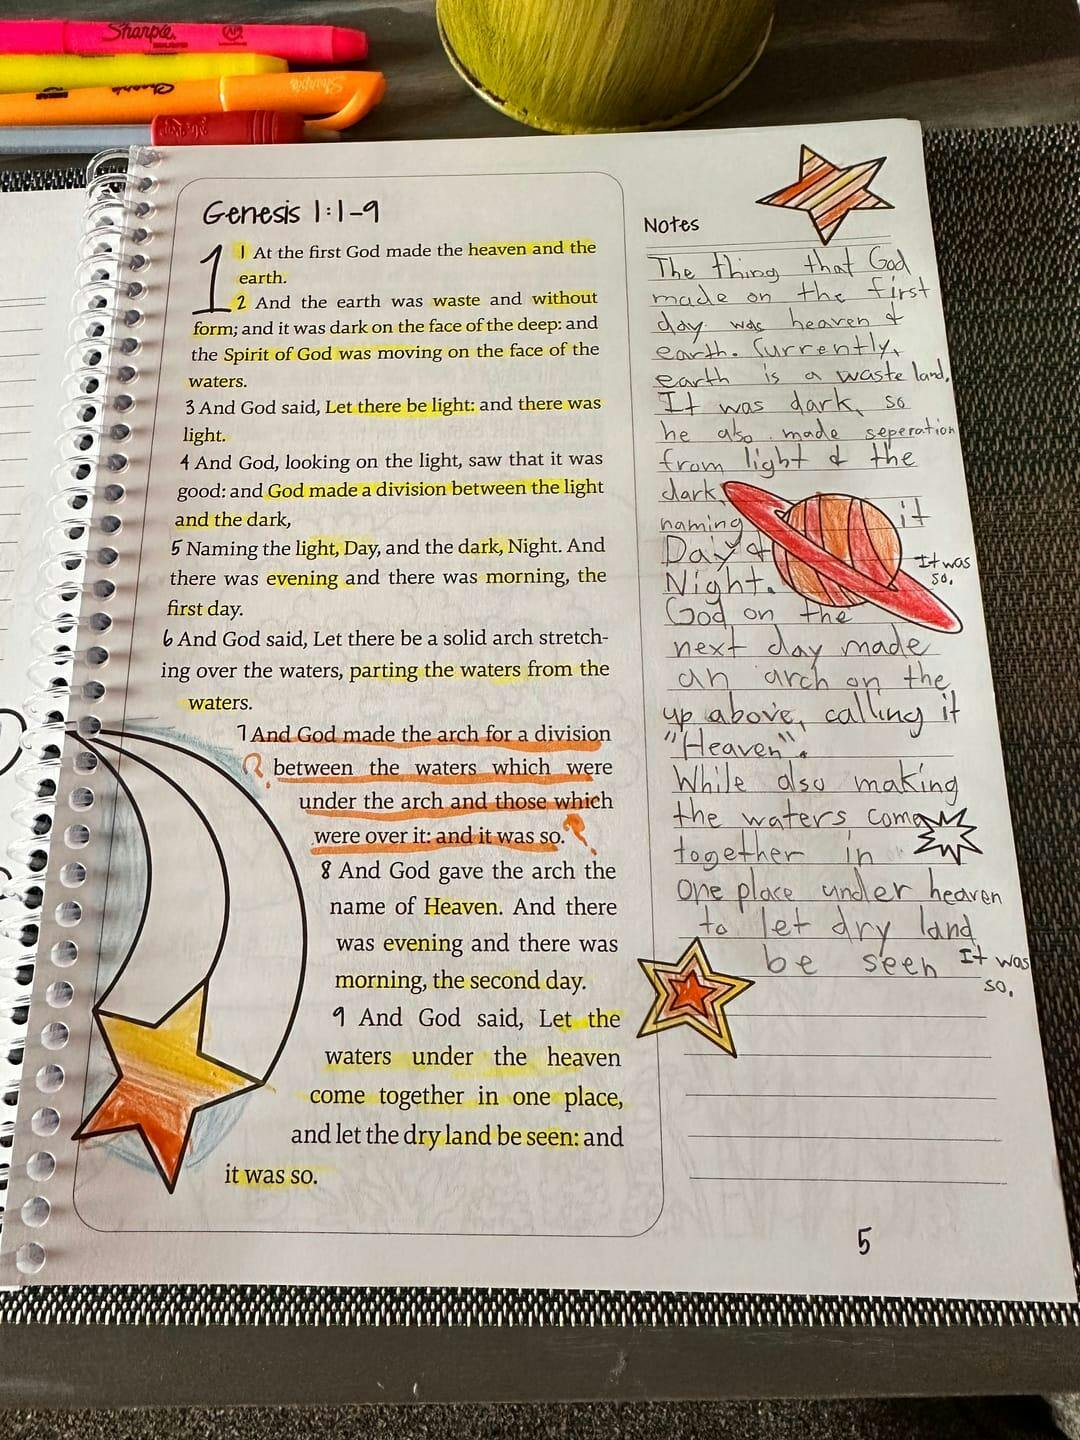 Sharpie
Sharpie
Sharpie
Genesis 1:1-9
1
1 At the first God made the heaven and the
earth.
2 And the earth was waste and without
form; and it was dark on the face of the deep: and
the Spirit of God was moving on the face of the
waters.
3 And God said, Let there be light: and there was
light.
4 And God, looking on the light, saw that it was
good: and God made a division between the light
and the dark,
5 Naming the light, Day, and the dark, Night. And
there was evening and there was morning, the
first day.
6 And God said, Let there be a solid arch stretch-
ing over the waters, parting the waters from the
waters.
7 And God made the arch for a division
? between the waters which were
under the arch and those which
were over it: and it was so. ?
8 And God gave the arch the
name of Heaven. And there
was evening and there was
morning, the second day.
9 And God said, Let the
waters under the heaven
come together in one place,
and let the dry land be seen: and
it was so.
Notes
The thing that God
made on the first
day was heaven &
earth. Currently,
earth is a waste land.
It was dark, so
he also made seperation
from light & the
dark,
naming it
Day &
Night.
It was
so.
God on the
next day made
an arch on the
up above, calling it
"Heaven".
While also making
the waters come
together in
one place under heaven
to let dry land
be seen
It was
so.
5